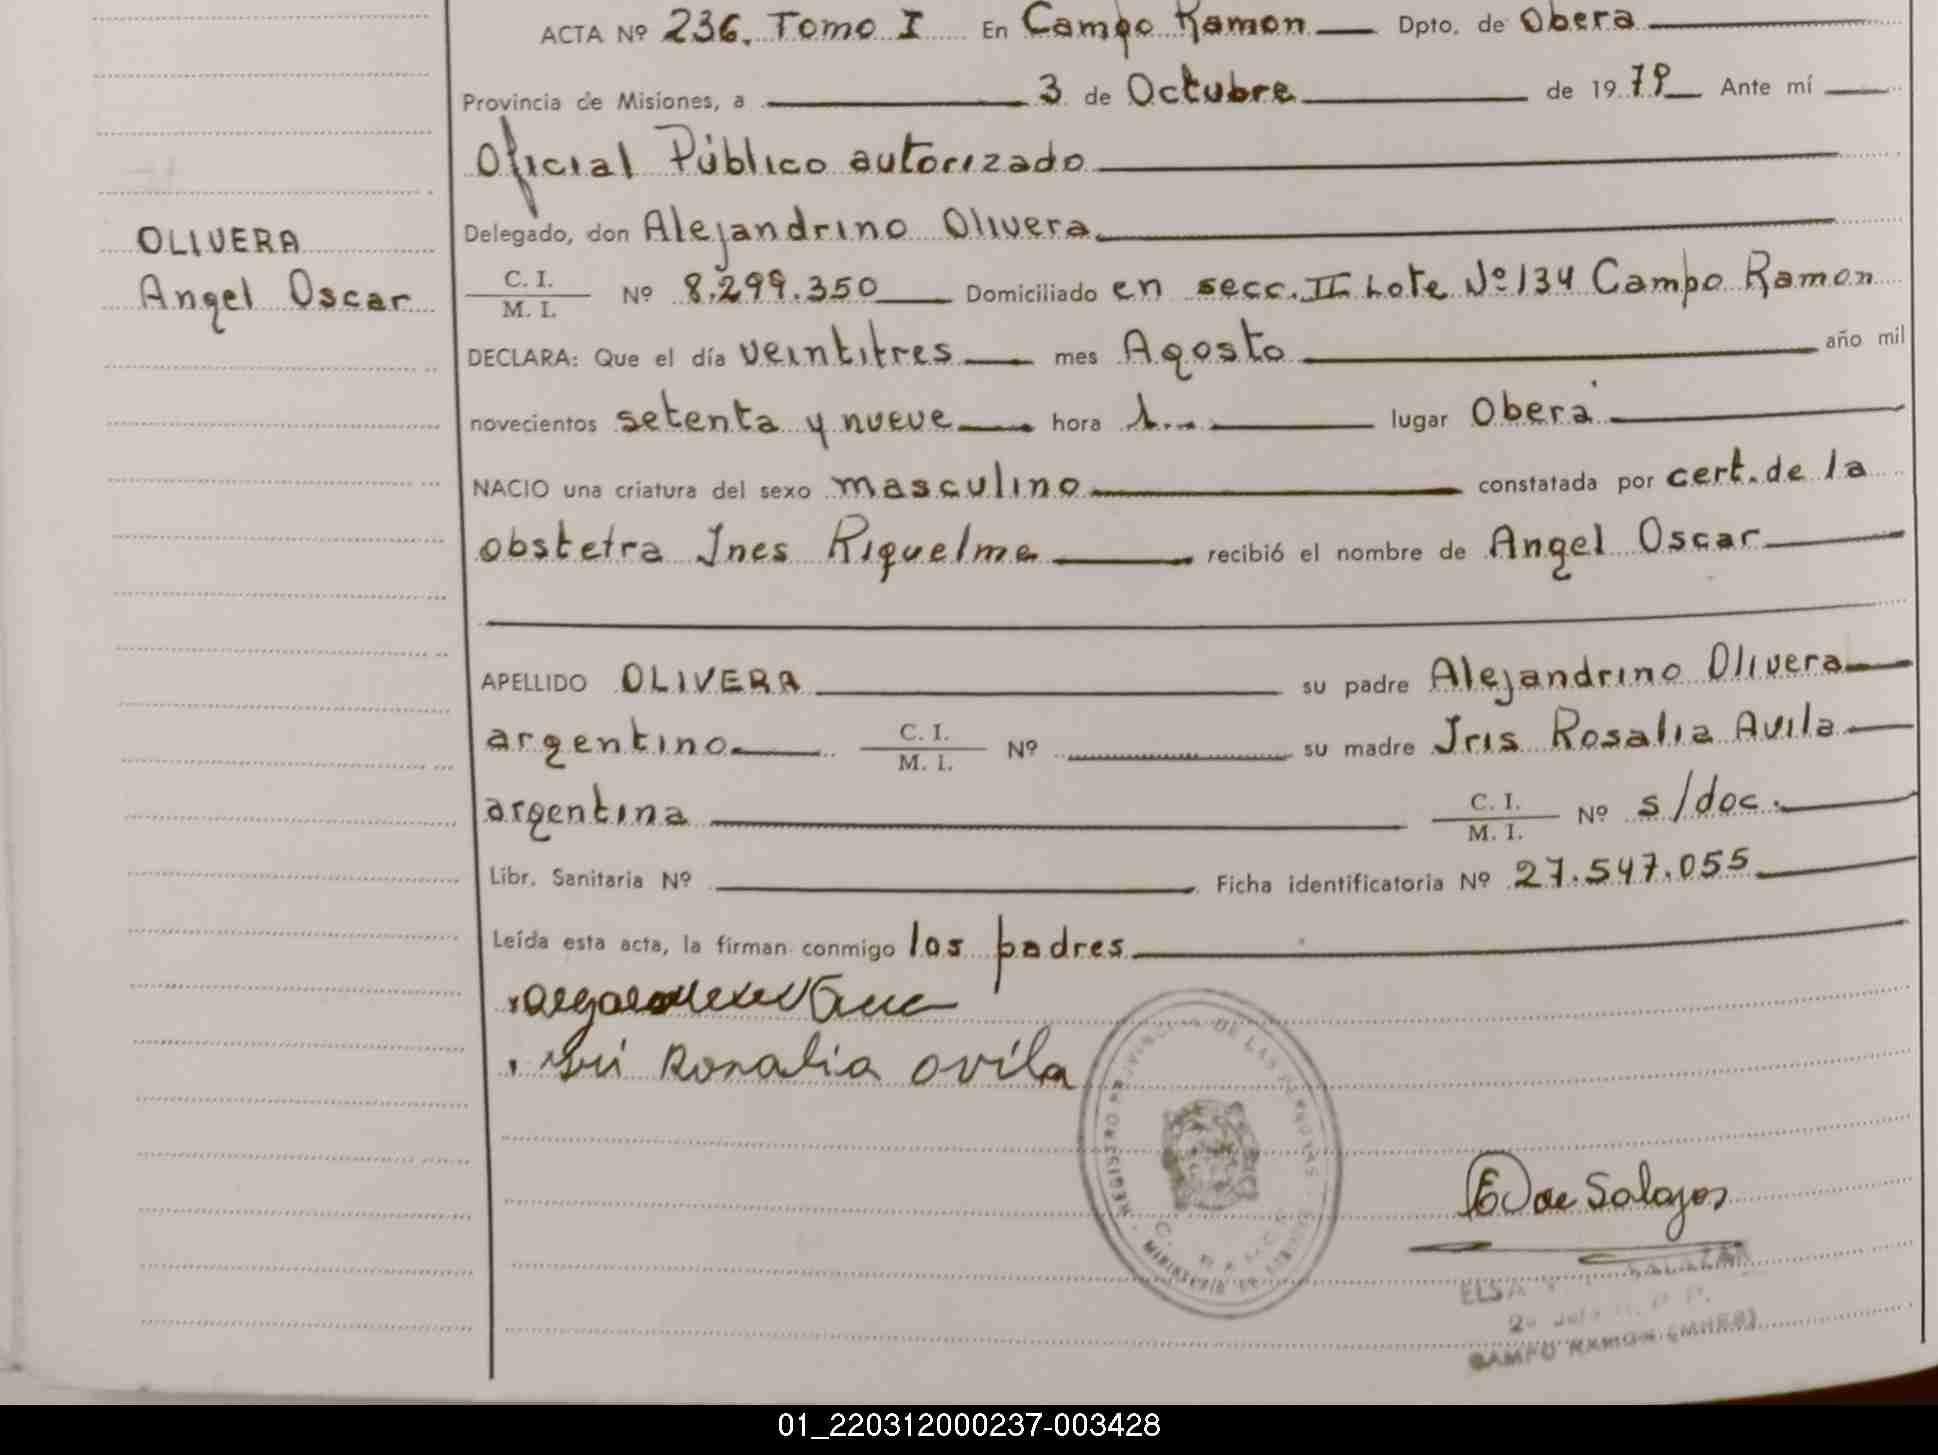 ACTA Nº 236. Tomo I En Campo Ramon Dpto. de Obera
Provincia de Misiones, a 3 de Octubre de 1979 Ante mí
Oficial Público autorizado
Delegado, don Alejandrino Olivera
OLIVERA
Angel Oscar
C. I.
M. I. Nº 8.299.350 Domiciliado en secc. II Lote Nº 134 Campo Ramon
DECLARA: Que el día veintitres mes Agosto año mil
novecientos setenta y nueve hora 1... lugar Oberá
NACIO una criatura del sexo masculino constatada por cert. de la
obstetra Ines Riquelme recibió el nombre de Angel Oscar
APELLIDO OLIVERA su padre Alejandrino Olivera
argentino C. I.
M. I. Nº su madre Iris Rosalia Avila
argentina C. I.
M. I. Nº s/doc.
Libr. Sanitaria Nº Ficha identificatoria Nº 27.547.055
Leída esta acta, la firman conmigo los padres
Rosalia ovila
REGISTRO PROVINCIAL DE LAS PERSONAS
MINISTERIO DE
de Salazar
ELSA SALAZAR
CAMPO RAMON (MNES)
01_220312000237-003428